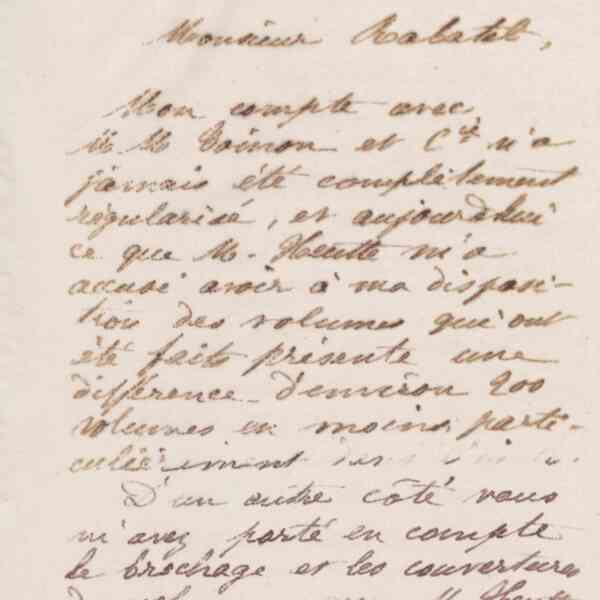 Monsieur Rabatel,
Mon compte avec
M M Toinon et Cie n'a
jamais été complètement
régularisé, et aujourd'hui
ce que M. Heutte m'a
accusé avoir à ma disposi-
tion des volumes qui ont
été faits présente une
différence d'environ 200
volumes en moins parti-
culièrement des
D'un autre côté vous
m'avez porté en compte
le brochage et les couvertures